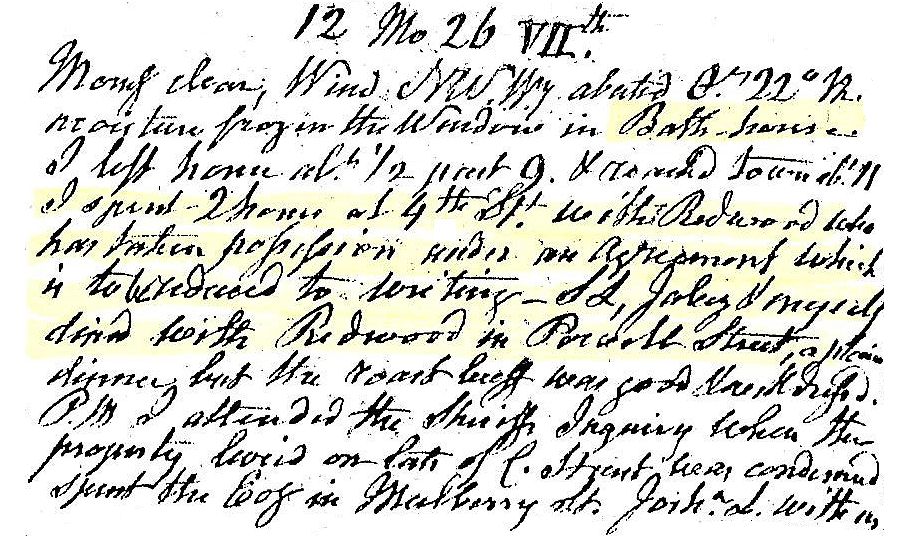 12 Mo. 26 VIIth.
Morng clear, Wind NW Wy abated Tr. 22° N.
moisture frozen the Window in Bath house
I left home abt. 1/2 past 9. & reached town abt. 11
I spent 2 hours at 4th St. with Redwood who
has taken possession under an Agreement which
is to be reduced to writing – SL, Jabez & myself
dined with Redwood in Powell Street, a plain
dinner but the roast beef was good & well dressed.
P.M I attended the Sheriffs Inquiry when the
property levied on late of C. Strent was condemned
spent the Eog in Mulberry St. Josha. L. with us